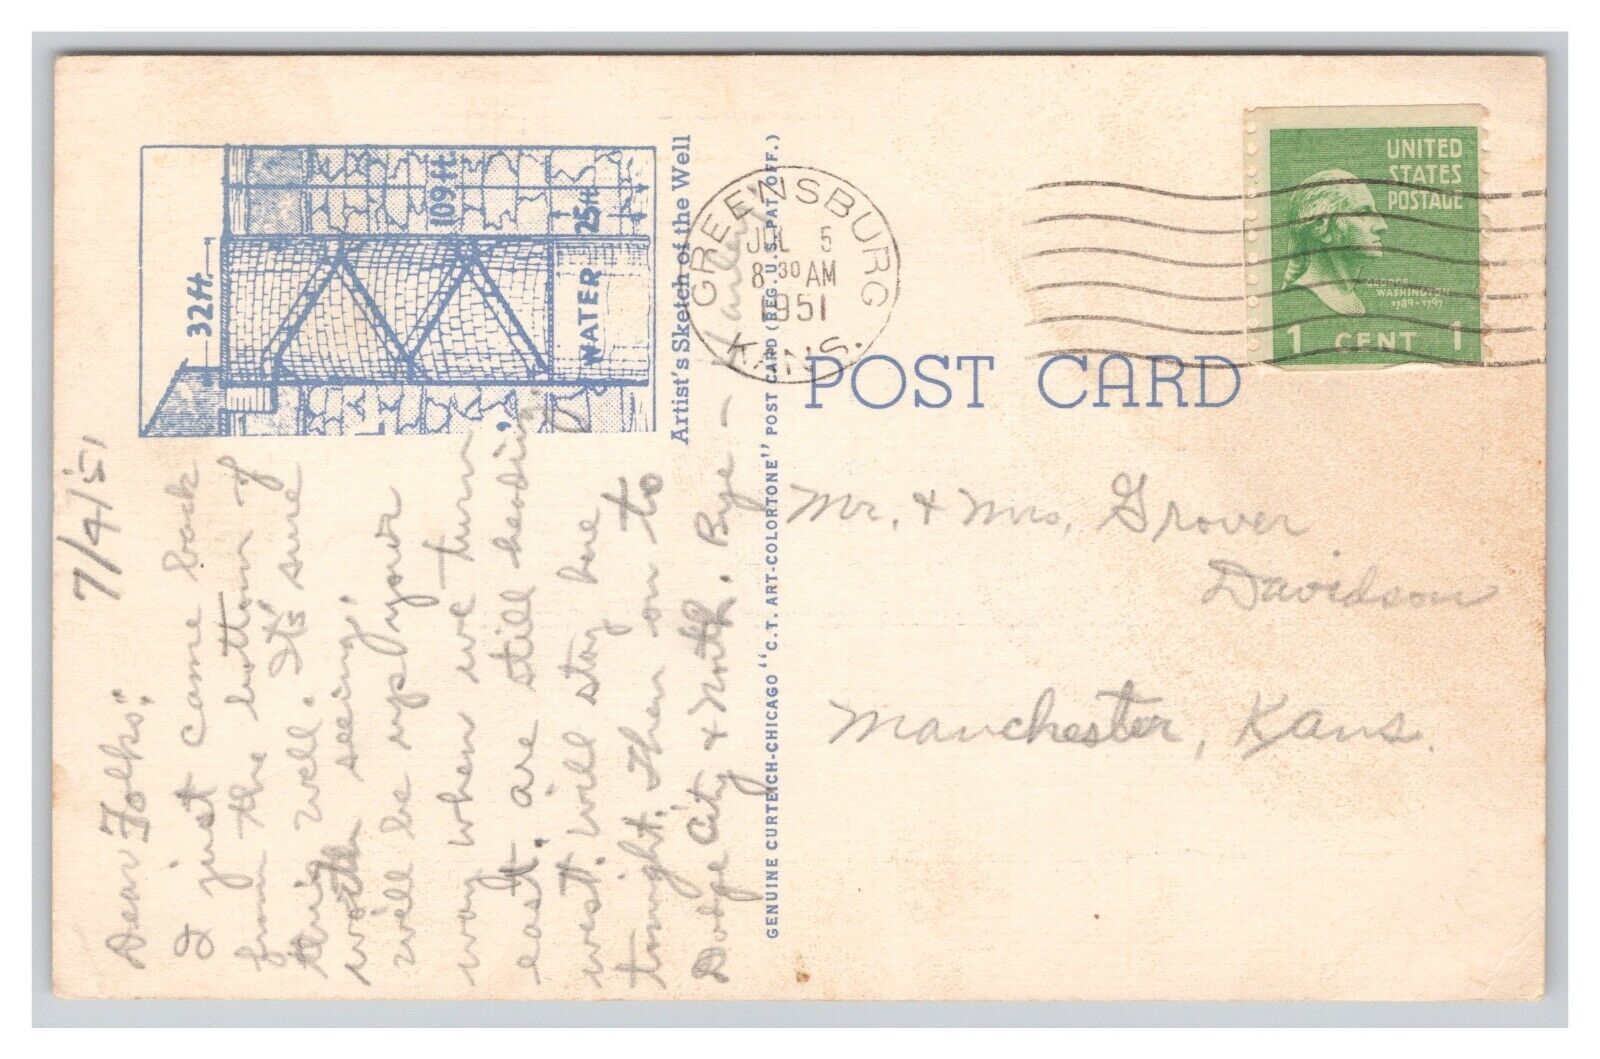 7/4/'51
Dear Folks:
I just came back
from the bottom of
this well. It's sure
worth seeing.
Will be up your
way when we turn
east. are still heading
west. Will stay here
tonight. Then on to
Dodge City & North. Bye —
32 ft.
109 ft.
25 ft.
WATER
Artist's Sketch of the Well
GENUINE CURTEICH-CHICAGO "C.T. ART-COLORTONE" POST CARD (REG. U.S. PAT. OFF.)
GREENSBURG
JUL 5
8 30 AM
1951
KANS.
UNITED
STATES
POSTAGE
GEORGE
WASHINGTON
1789-1797
1 CENT 1
POST CARD
Mr. & Mrs. Grover
Davidson
Manchester, Kans.